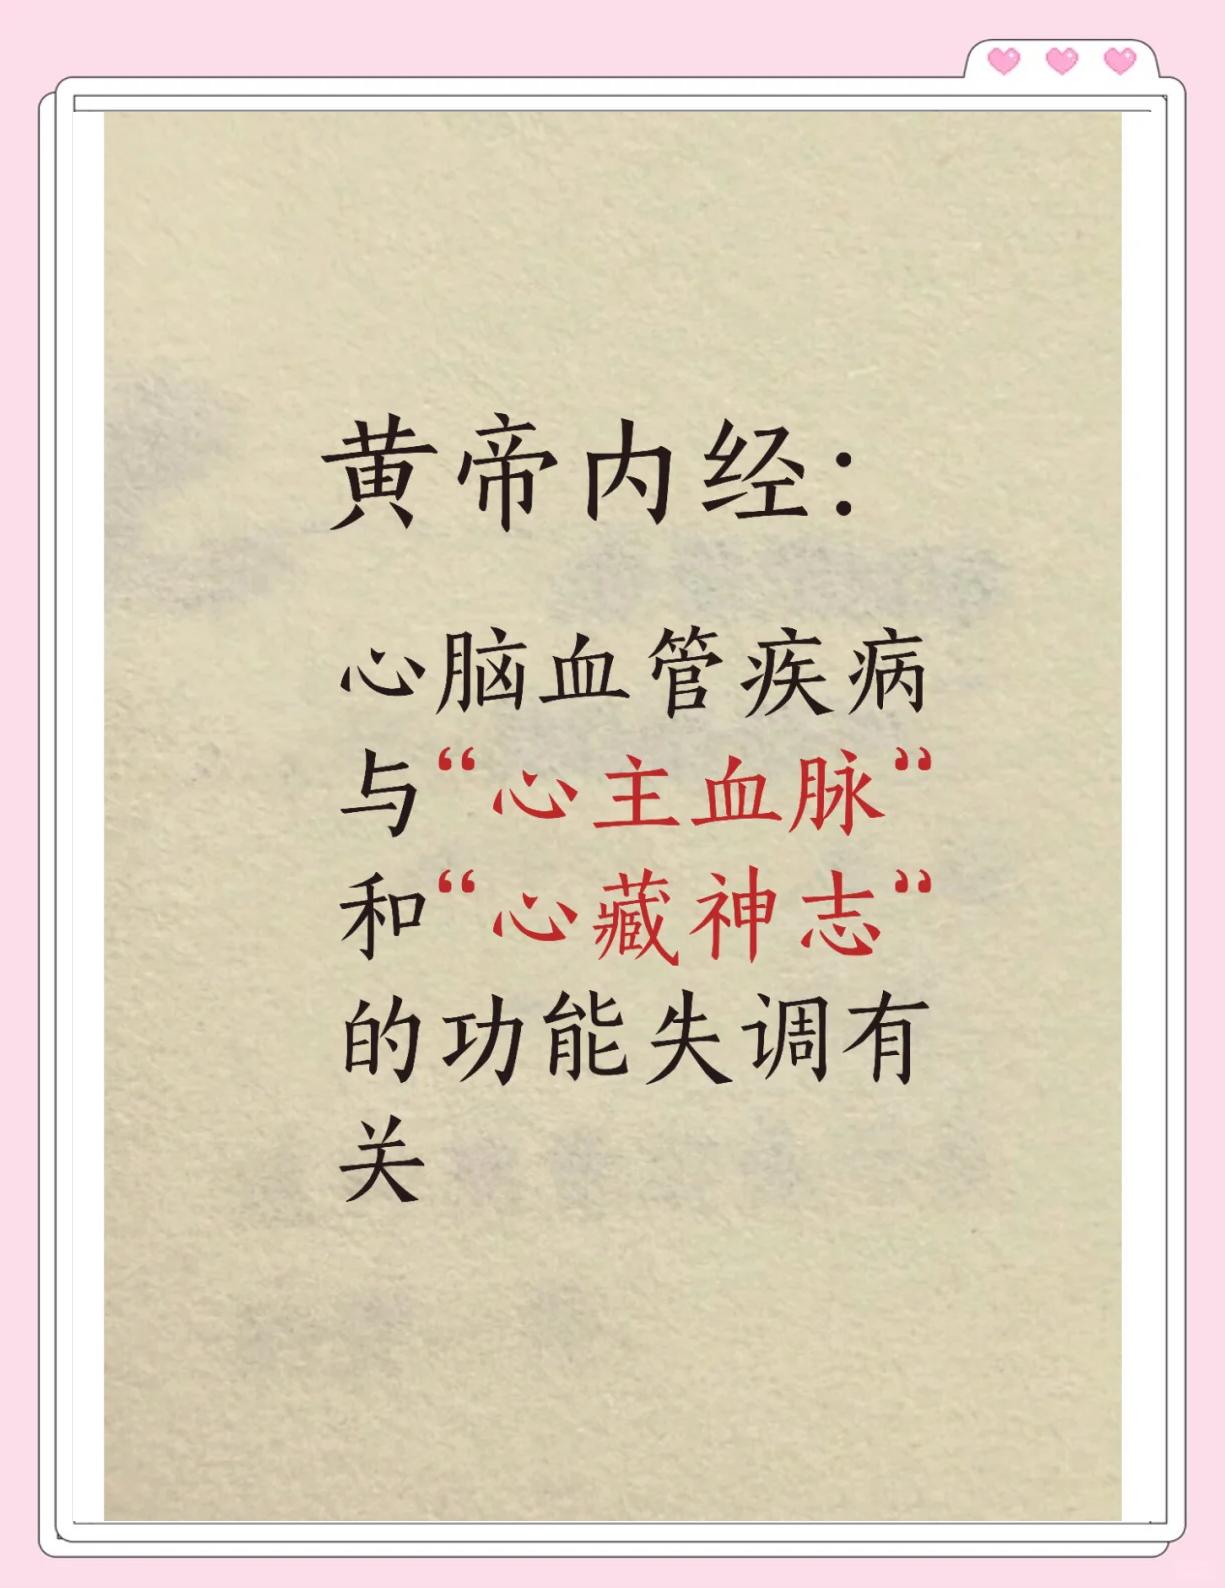 黄帝内经：
心脑血管疾病
与“心主血脉”
和“心藏神志”
的功能失调有
关